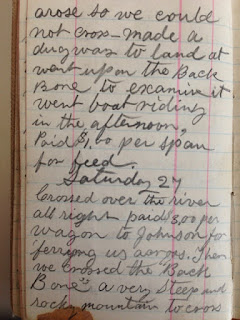 arose so we could
not cross - made a
dugway to land at
went upon the Back
Bone to examine it
went boat riding
in the afternoon,
Paid $1,00 per span
for feed.
Saturday 27
Crossed over the river
all right paid 3,00 per
wagon to Johnson for
ferrying us across. Then
we crossed the Back
Bone a very steep and
rocky mountain to cross